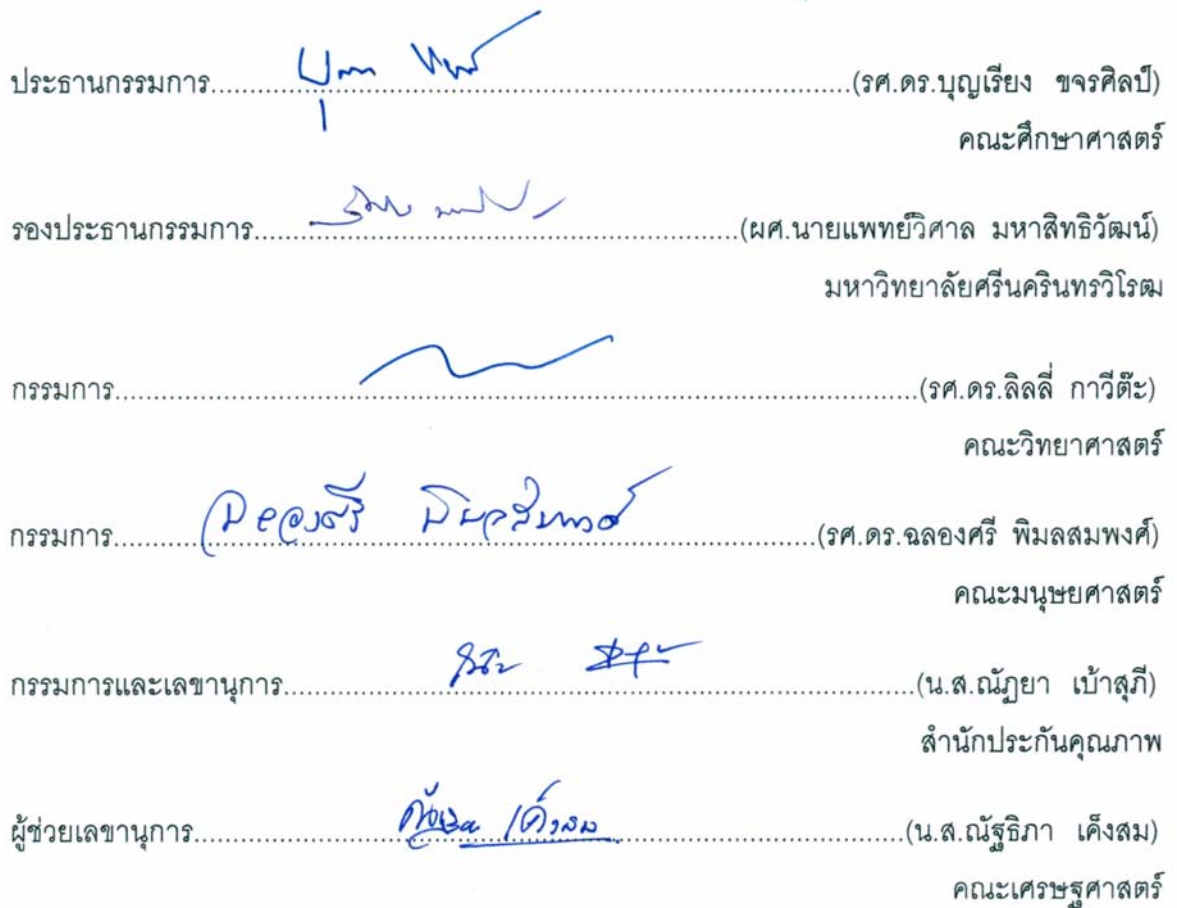 ประธานกรรมการ............................................................(รศ.ดร.บุญเรียง ขจรศิลป์)
คณะศึกษาศาสตร์
รองประธานกรรมการ..............................................(ผศ.นายแพทย์วิศาล มหาสิทธิวัฒน์)
มหาวิทยาลัยศรีนครินทรวิโรฒ
กรรมการ..........................................................................(รศ.ดร.ลิลลี่ กาวีต๊ะ)
คณะวิทยาศาสตร์
กรรมการ....ฉลองศรี พิมลสมพงศ์....(รศ.ดร.ฉลองศรี พิมลสมพงศ์)
คณะมนุษยศาสตร์
กรรมการและเลขานุการ............................................................(น.ส.ณัฏยา เบ้าสุภี)
สำนักประกันคุณภาพ
ผู้ช่วยเลขานุการ....................................................................(น.ส.ณัฐธิภา เค็งสม)
คณะเศรษฐศาสตร์